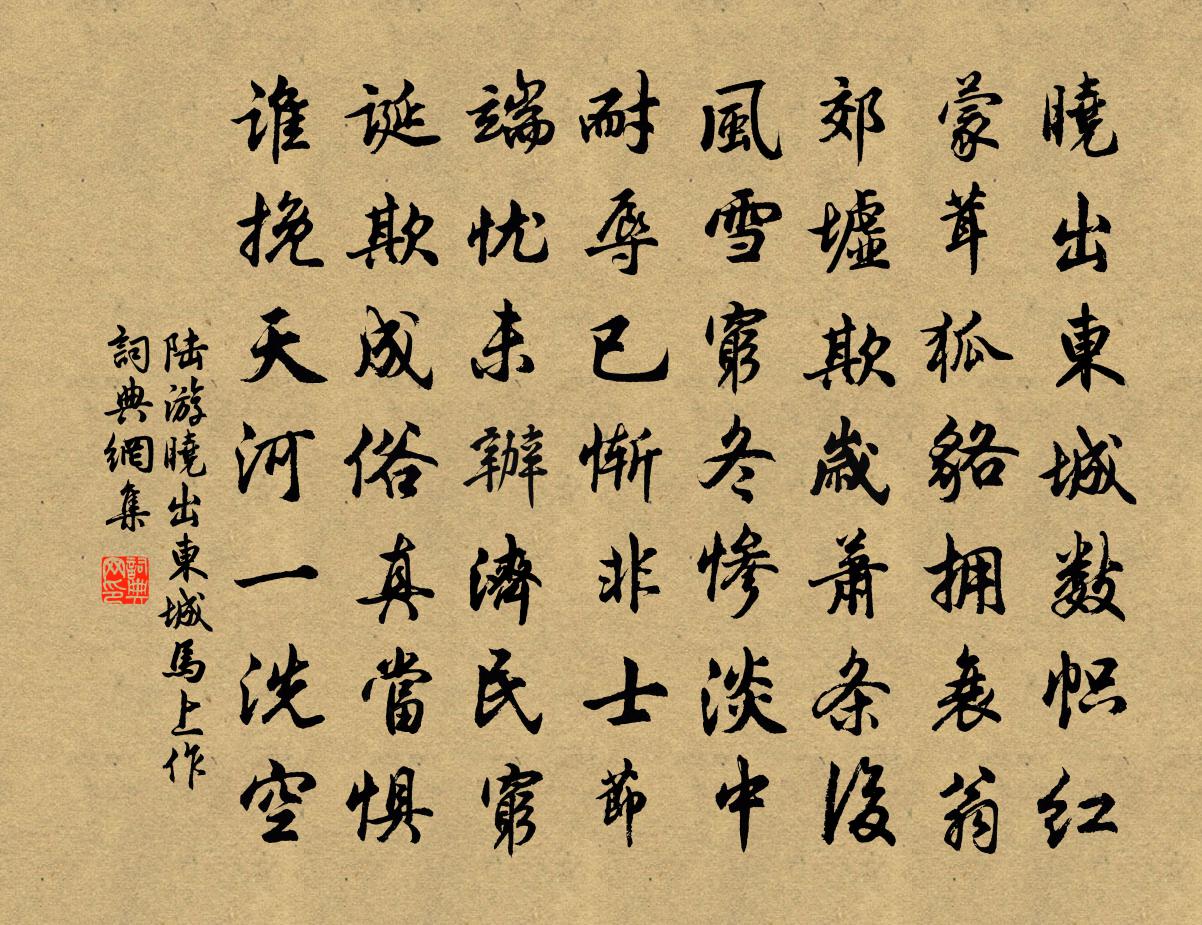 曉出東城數帜红
蒙茸狐貉拥衰翁
郊墟欺歲萧条後
風雪窮冬惨淡中
耐辱已惭非士節
端忧未辦濟民窮
誕欺成俗真當惧
谁挽天河一洗空
陆游曉出東城馬上作
詞典網集
詞典網印